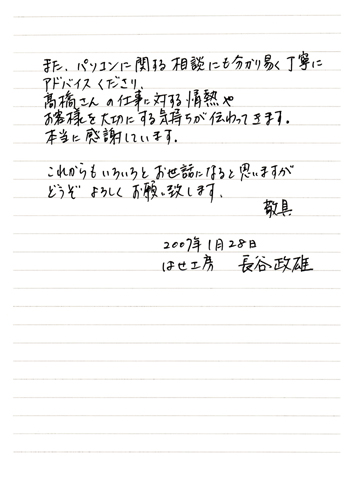 また、パソコンに関する相談にも分かり易く丁寧に
アドバイスくださり、
高橋さんの仕事に対する情熱や
お客様を大切にする気持ちが伝わってきます。
本当に感謝しています。
これからもいろいろとお世話になると思いますが
どうぞ よろしく お願い致します。
敬具
2007年1月28日
はせ工房 長谷政雄